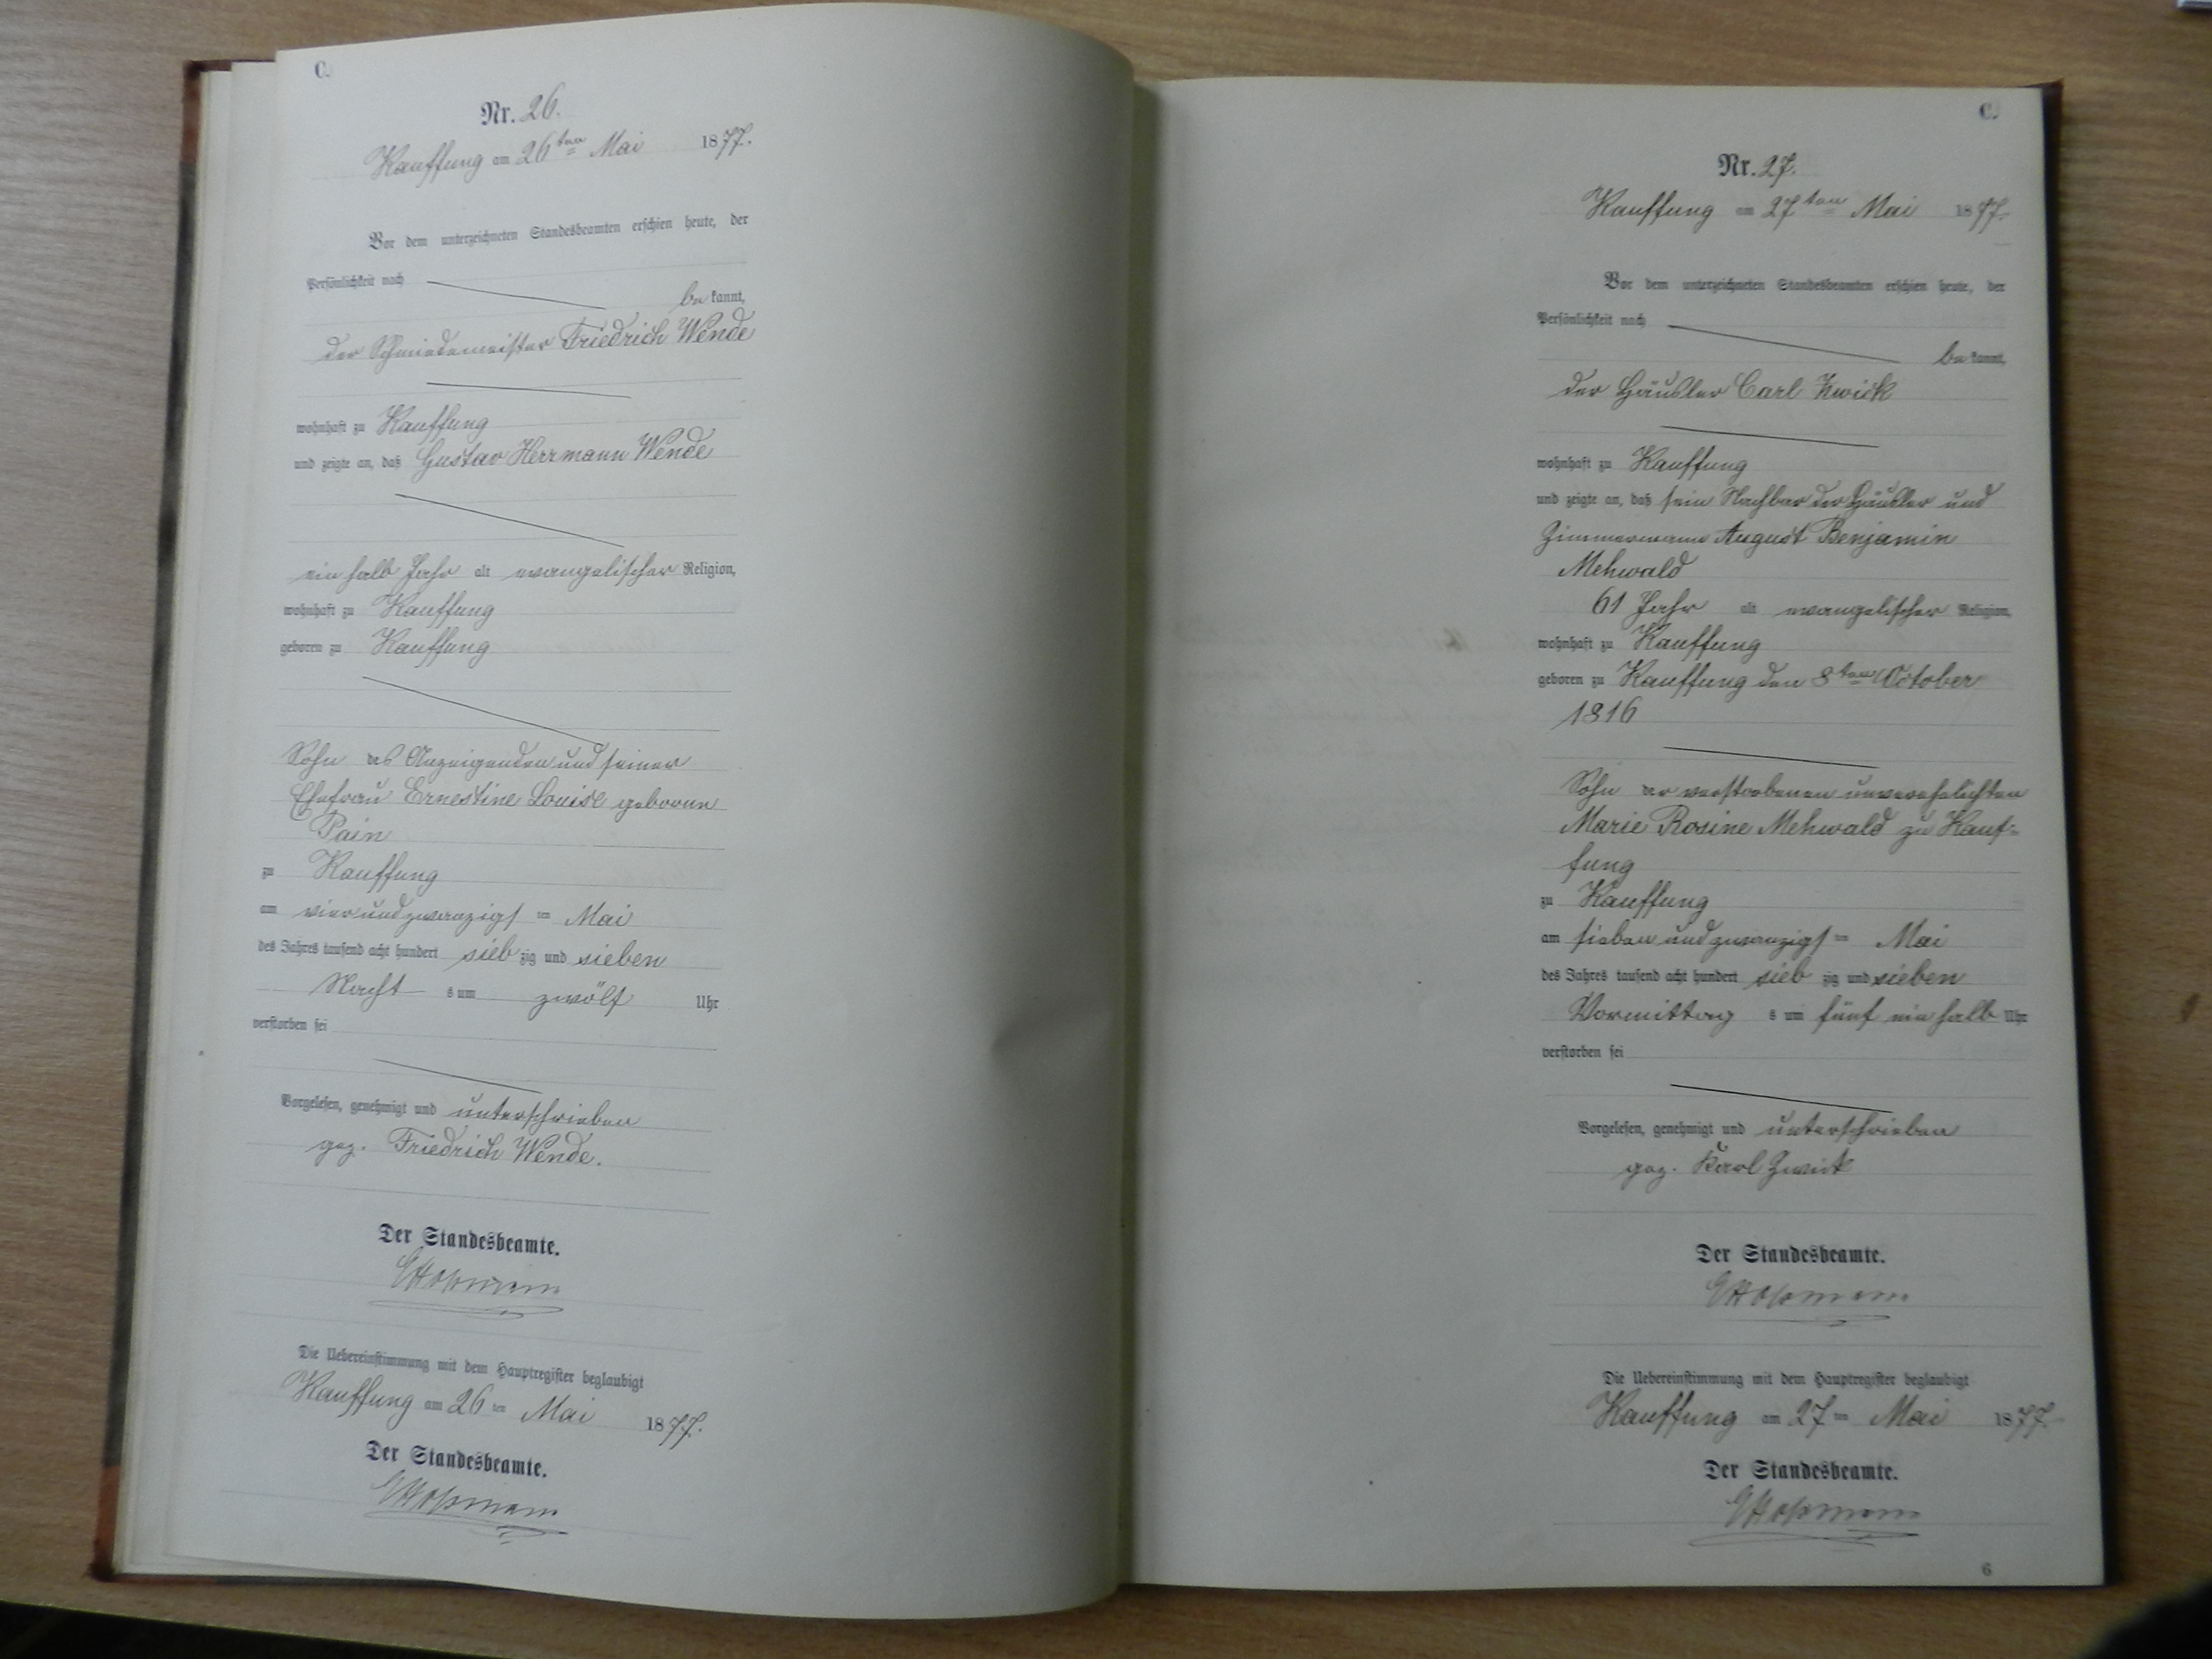 C.
Nr. 26.
Kauffung am 26ten Mai 1877.
Vor dem unterzeichneten Standesbeamten erschien heute, der
Persönlichkeit nach
be kannt,
der Schmiedemeister Friedrich Wende
wohnhaft zu Kauffung
und zeigte an, daß Gustav Herrmann Wende
ein halb Jahr alt evangelischer Religion,
wohnhaft zu Kauffung
geboren zu Kauffung
Sohn des Anzeigenden und seiner
Ehefrau Ernestine Louise geborne
Pain
zu Kauffung
am vierundzwanzigst ten Mai
des Jahres tausend acht hundert sieb zig und sieben
Nacht s um zwölf Uhr
verstorben sei
Vorgelesen, genehmigt und unterschrieben
gez. Friedrich Wende.
Der Standesbeamte.
Die Uebereinstimmung mit dem Hauptregister beglaubigt
Kauffung am 26 ten Mai 1877.
Der Standesbeamte.
C.
Nr. 27.
Kauffung am 27ten Mai 1877.
Vor dem unterzeichneten Standesbeamten erschien heute, der
Persönlichkeit nach
be kannt,
der Häusler Carl Zwick
wohnhaft zu Kauffung
und zeigte an, daß sein Nachbar der Häusler und
Zimmermann August Benjamin
Mehwald
61 Jahr alt evangelischer Religion,
wohnhaft zu Kauffung
geboren zu Kauffung den 8ten October
1816
Sohn der verstorbenen unverehelichten
Marie Rosine Mehwald zu Kauf-
fung
zu Kauffung
am siebenundzwanzigst ten Mai
des Jahres tausend acht hundert sieb zig und sieben
Vormittag s um fünf ein halb Uhr
verstorben sei
Vorgelesen, genehmigt und unterschrieben
gez. Karl Zwick
Der Standesbeamte.
Die Uebereinstimmung mit dem Hauptregister beglaubigt
Kauffung am 27 ten Mai 1877.
Der Standesbeamte.
6